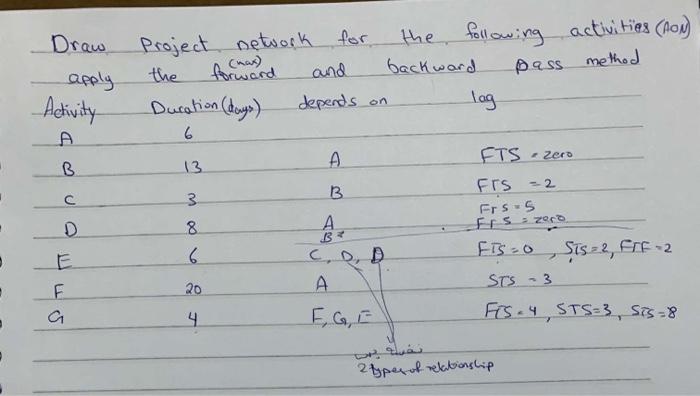 Draw Project network for the following activities (AON)
apply the forward (max) and backward pass method
Activity Duration (days) depends on lag
A 6
B 13 A FTS = zero
C 3 B FTS = 2
D 8 A FTS = 5
B FTS = zero
E 6 C, D, D FTS = 0, STS = 2, FTF = 2
F 20 A STS = 3
G 4 F, G, E FTS = 4, STS = 3, STS = 8
2 types of relationship